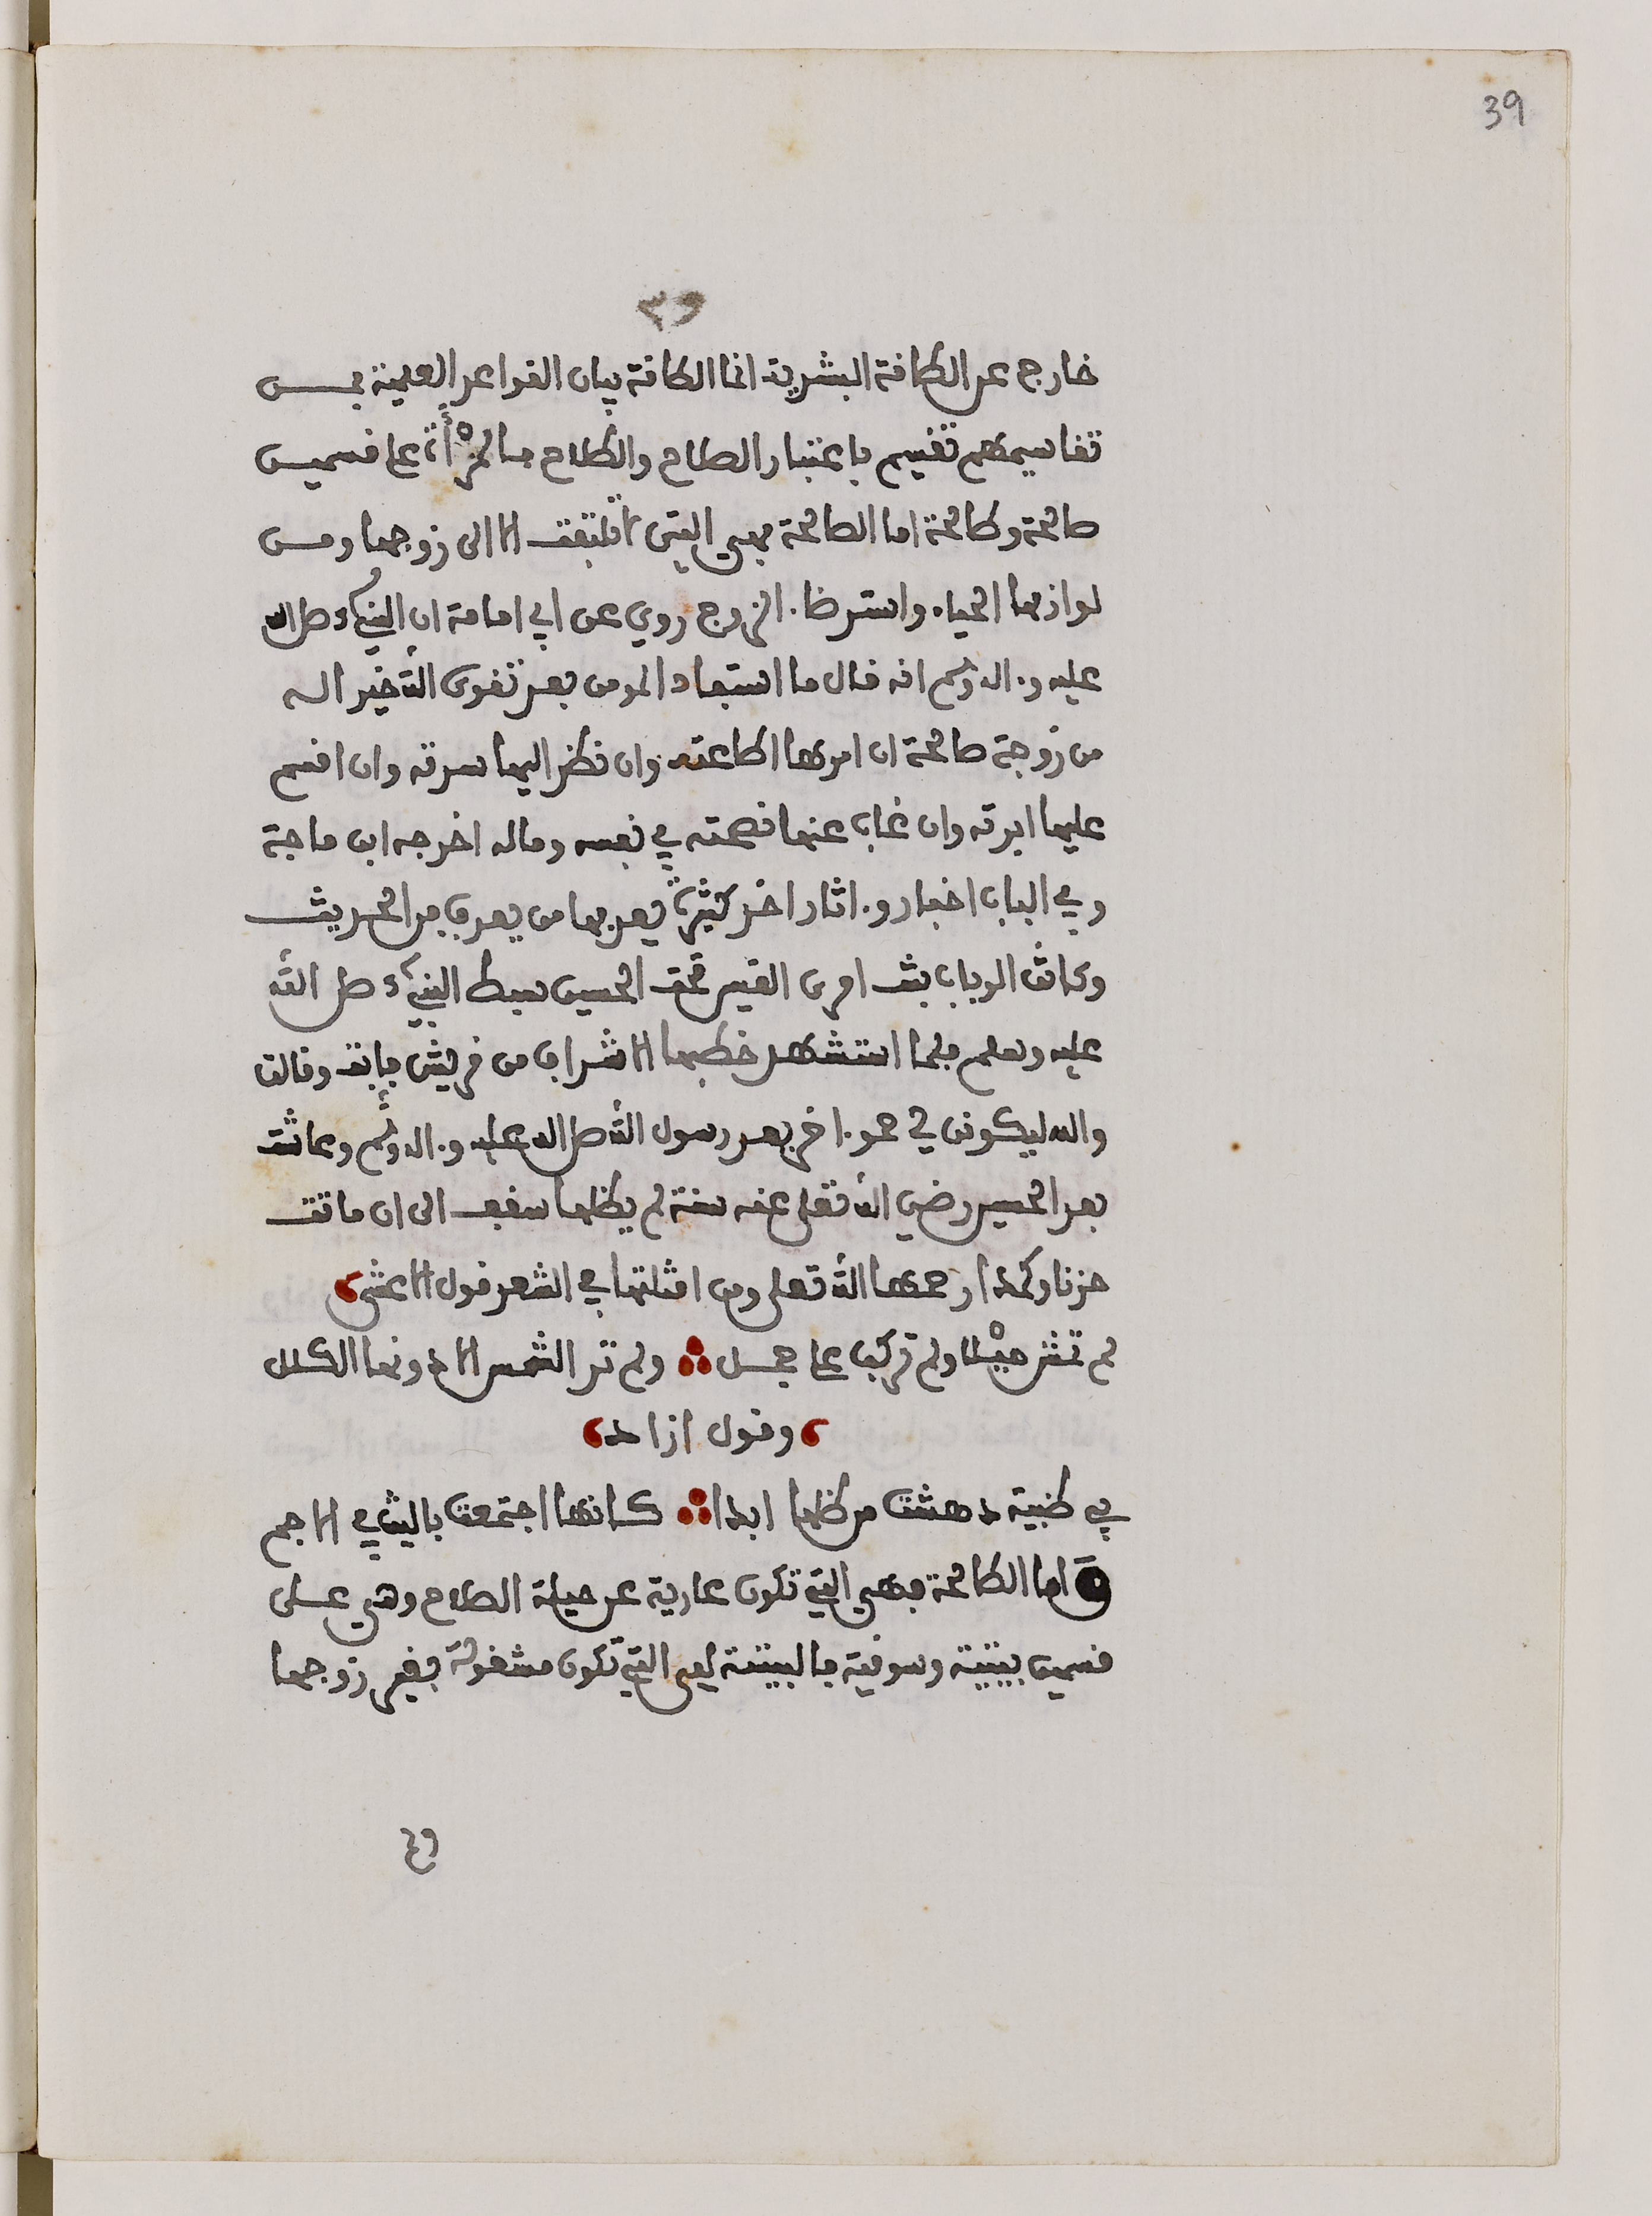 39
٣٩
خارج عن الطاقة البشرية انما الطاقة بيان القواعد العلمية فمن
تقاسيمهم تقسيم باعتبار الصلاح والطلاح فالمرْأة على قسمين
صالحة وطالحة اما الصالحة فهي التي لا تلتفت الا الى زوجها ومن
لوازمها الحياء واسترضاء الزوج روي عن ابي امامة ان النبيء صلى الله
عليه وءاله وسلم انه قال ما استفاد المومن بعد تقوى الله خير اله
من زوجة صالحة ان امرها اطاعته وان نظر اليها سرته وان اقسم
عليها ابرته وان غاب عنها نصحته في نفسه وماله اخرجه ابن ماجة
وفي الباب اخبار وءاثار اخر كثيرة يعرفها من يعرف من الحديث
وكانت الرباب بنت امرئ القيس تحت الحسين سبط النبيء صلى الله
عليه وسلم فلما استشهد خطبها الاشراف من قريش فابت وقالت
والله ليكونن لي حموءاخر بعد رسول الله صلى الله عليه وءاله وسلم وعاشت
بعد الحسين رضي الله تعلى عنه سنة لم يظلها سقف الى ان ماتت
حزنا وكمدا رحمها الله تعلى ومن امثلتها في الشعر قول الاعشى
لم تمش ميْلا ولم تركب على جمل ولم تر الشمس الا دونها الكلل
وقول ازاد
في ظبية دهشت من ظلها ابدا كانها اجتمعت بالنبي الاجم
اما الطالحة فهي التي تكون عارية عن حيلة الصلاح وهي على
قسمين بيتية وسوقية فالبيتية هي التي تكون مشغولة بغير زوجها
وع